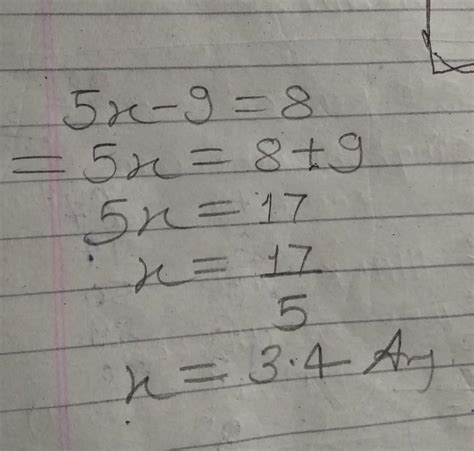 5x - 9 = 8
= 5x = 8 + 9
5x = 17
x = 17/5
x = 3.4 Ans